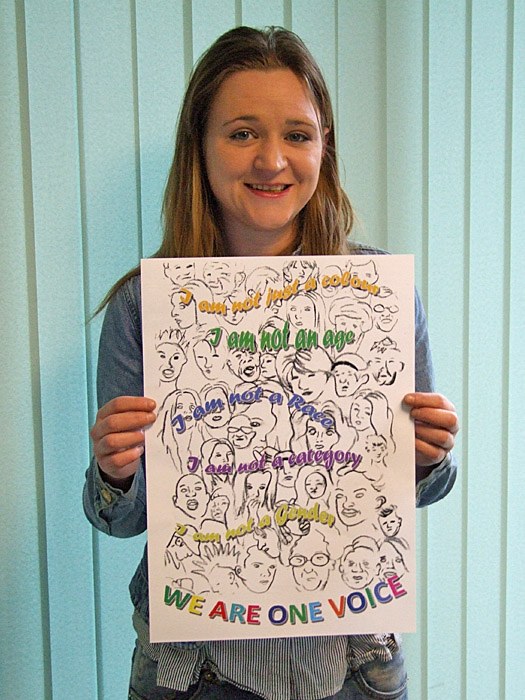 I am not just a colour
I am not an age
I am not a Race
I am not a category
I am not a Gender
WE ARE ONE VOICE